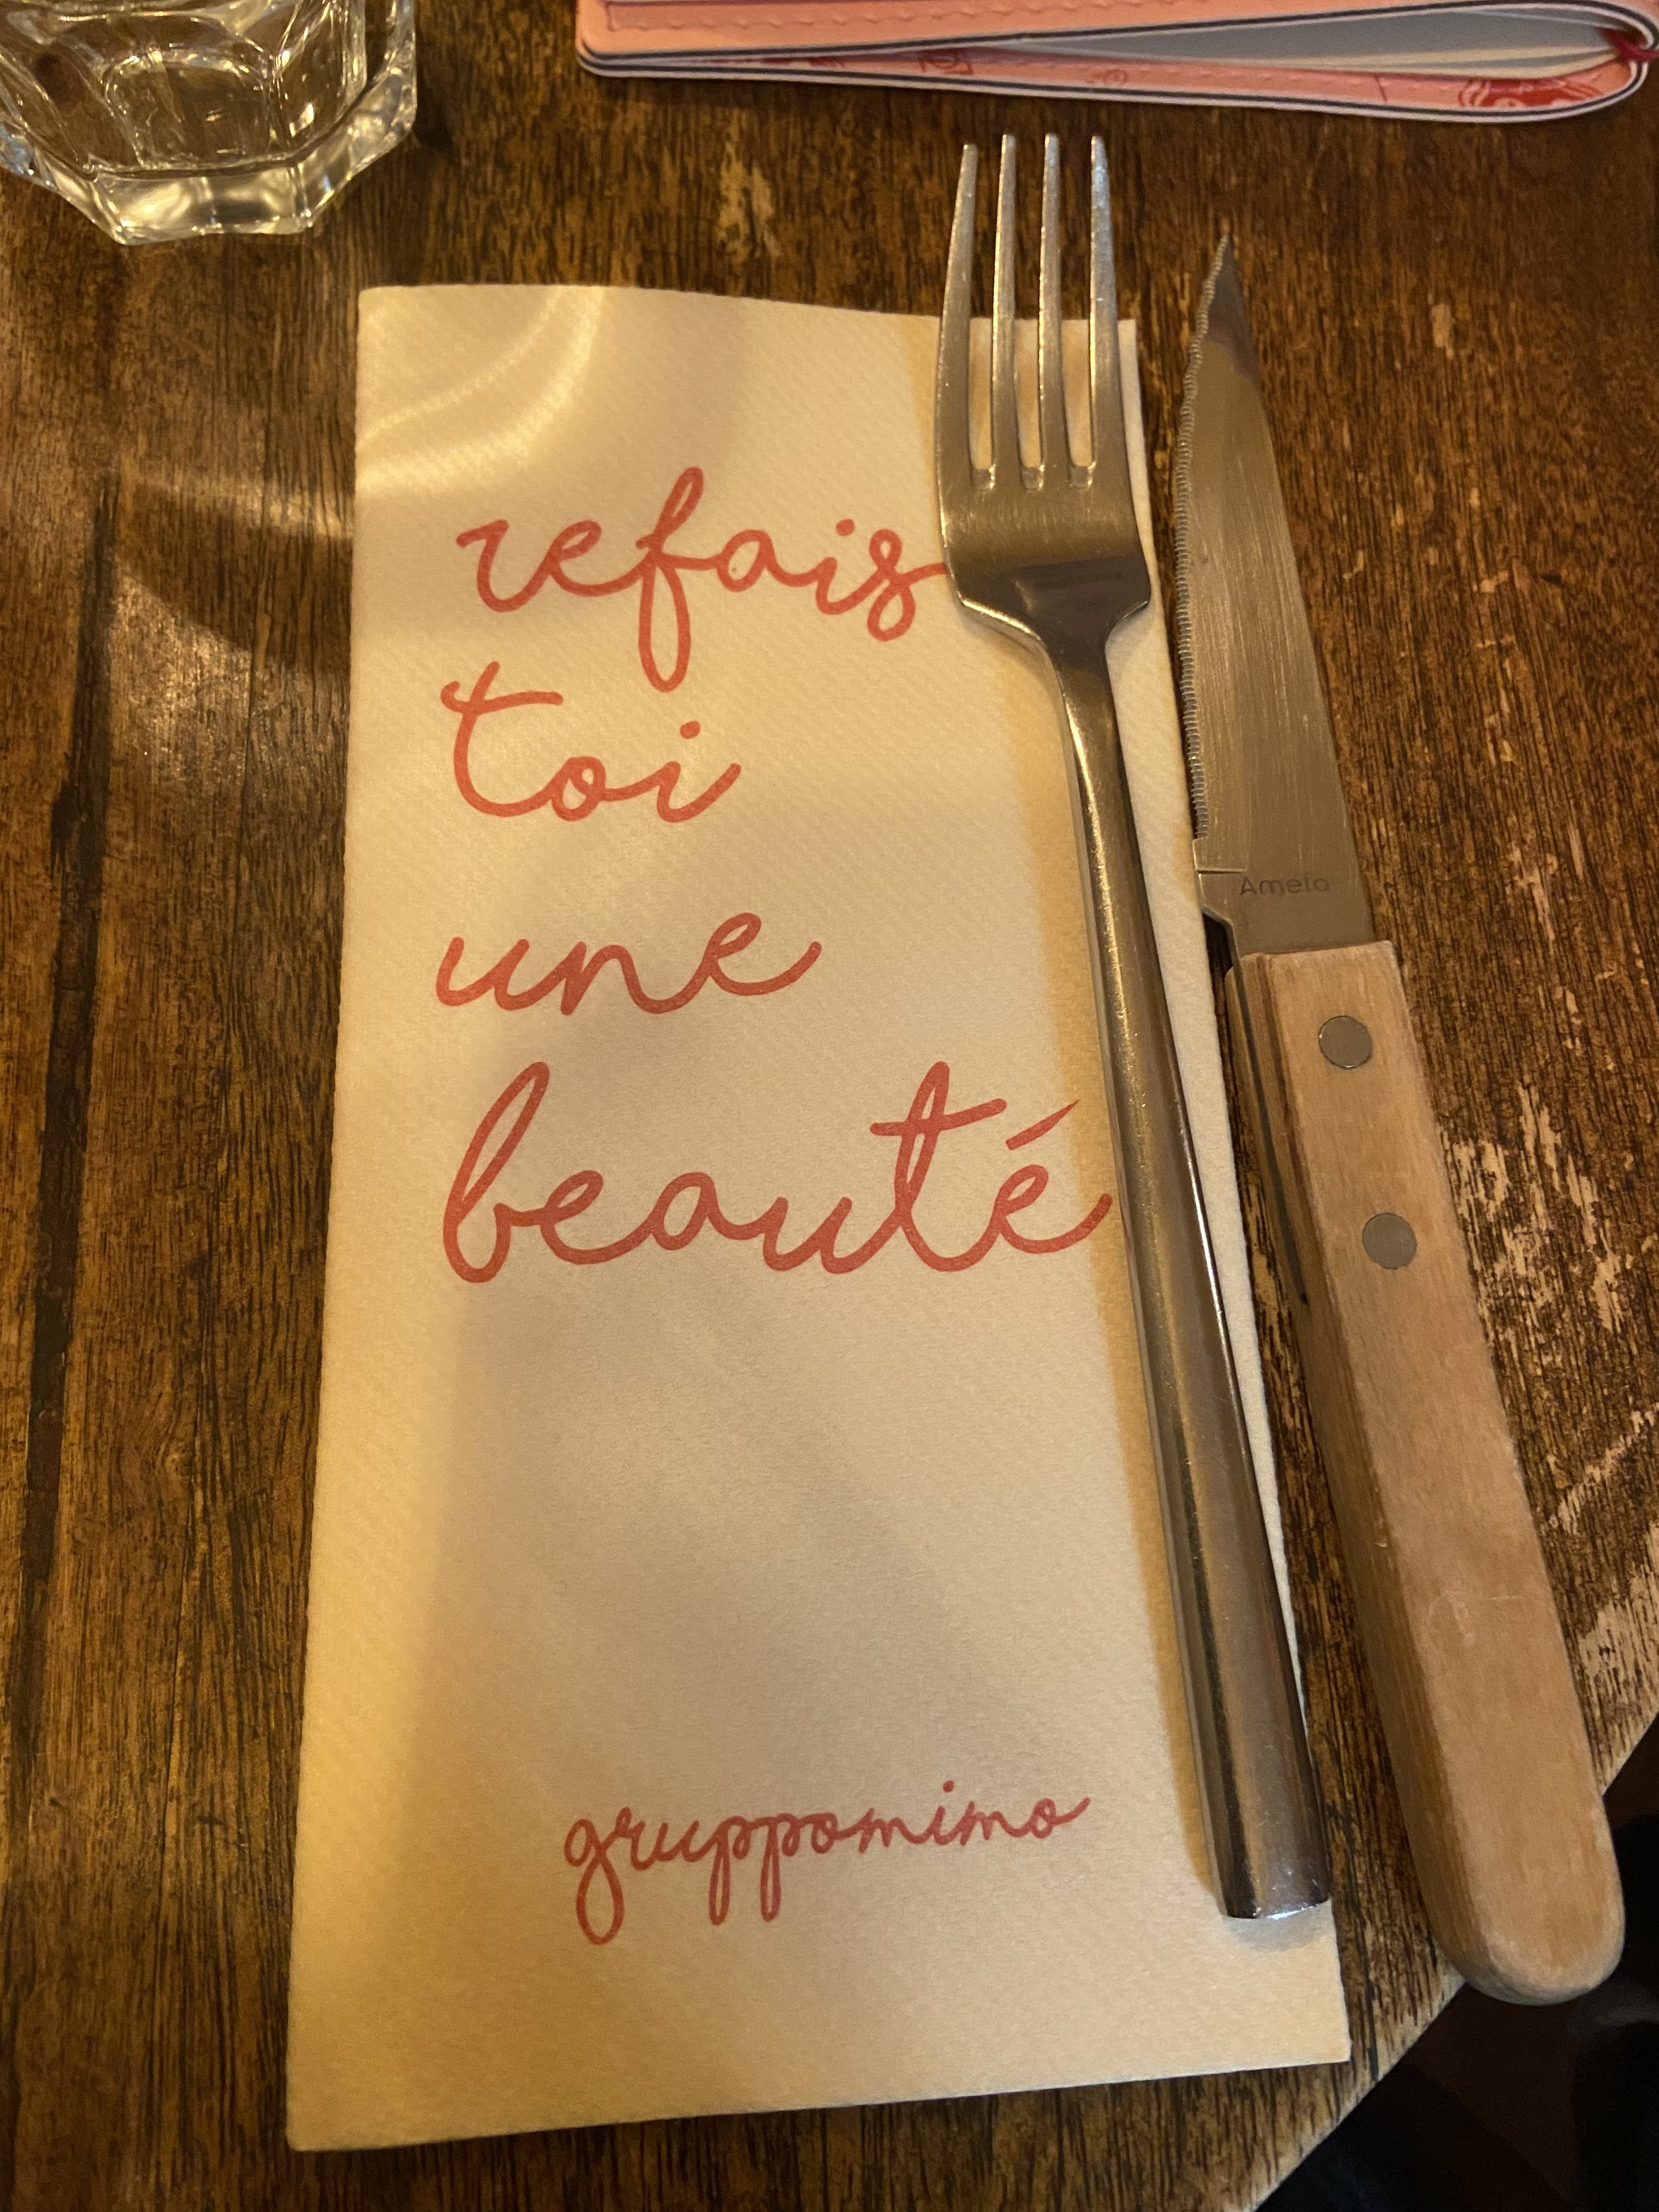 refais
toi
une
beauté
Amefa
gruppomimo